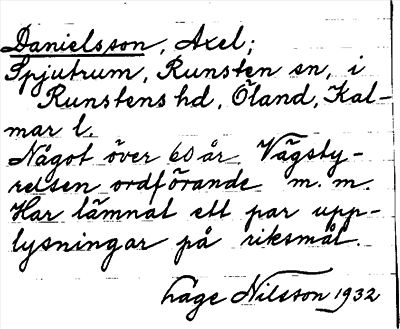 Danielsson, Axel;
Spjutrum, Runsten sn, i
Runstens hd, Öland, Kal-
mar l.
Något över 60 år. Vägsty-
relsen ordförande m. m.
Har lämnat ett par upp-
lysningar på riksmål.
Låge Nilsson 1932